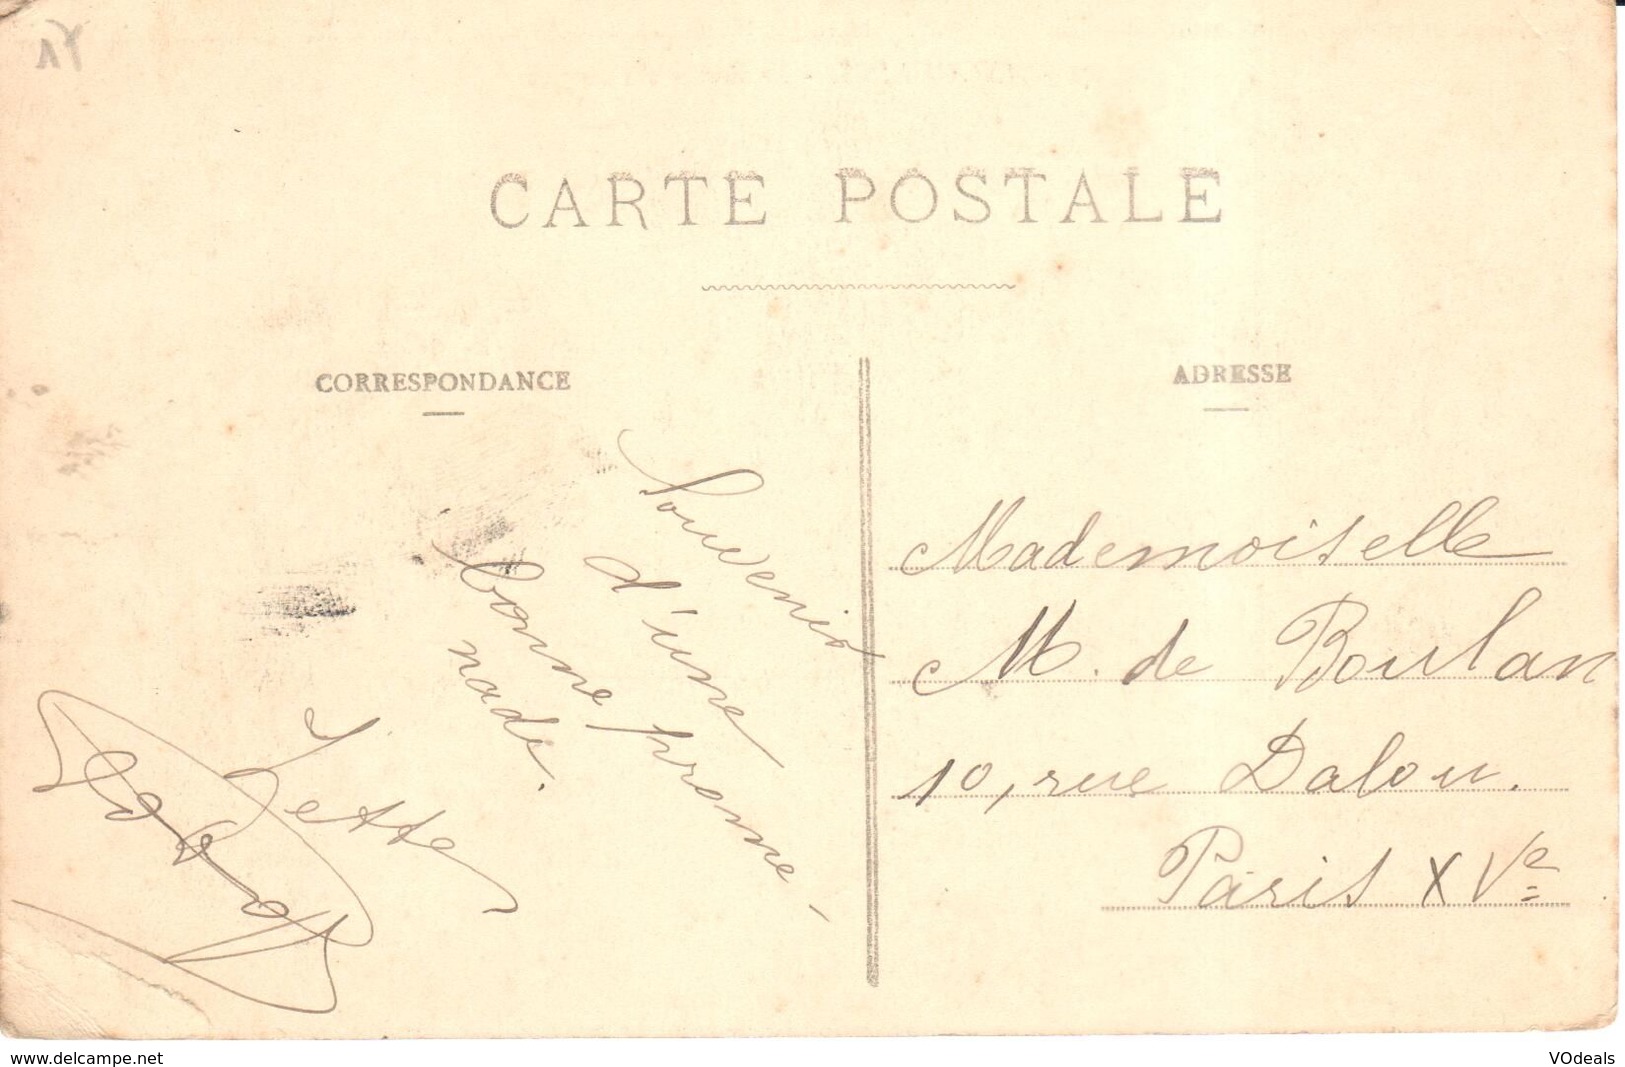 CARTE POSTALE
CORRESPONDANCE
ADRESSE
Souvenir
d'une
bonne prome-
nade.
Mademoiselle
M. de Boulan
10, rue Dalou.
Paris XVe
www.delcampe.net
VOdeals